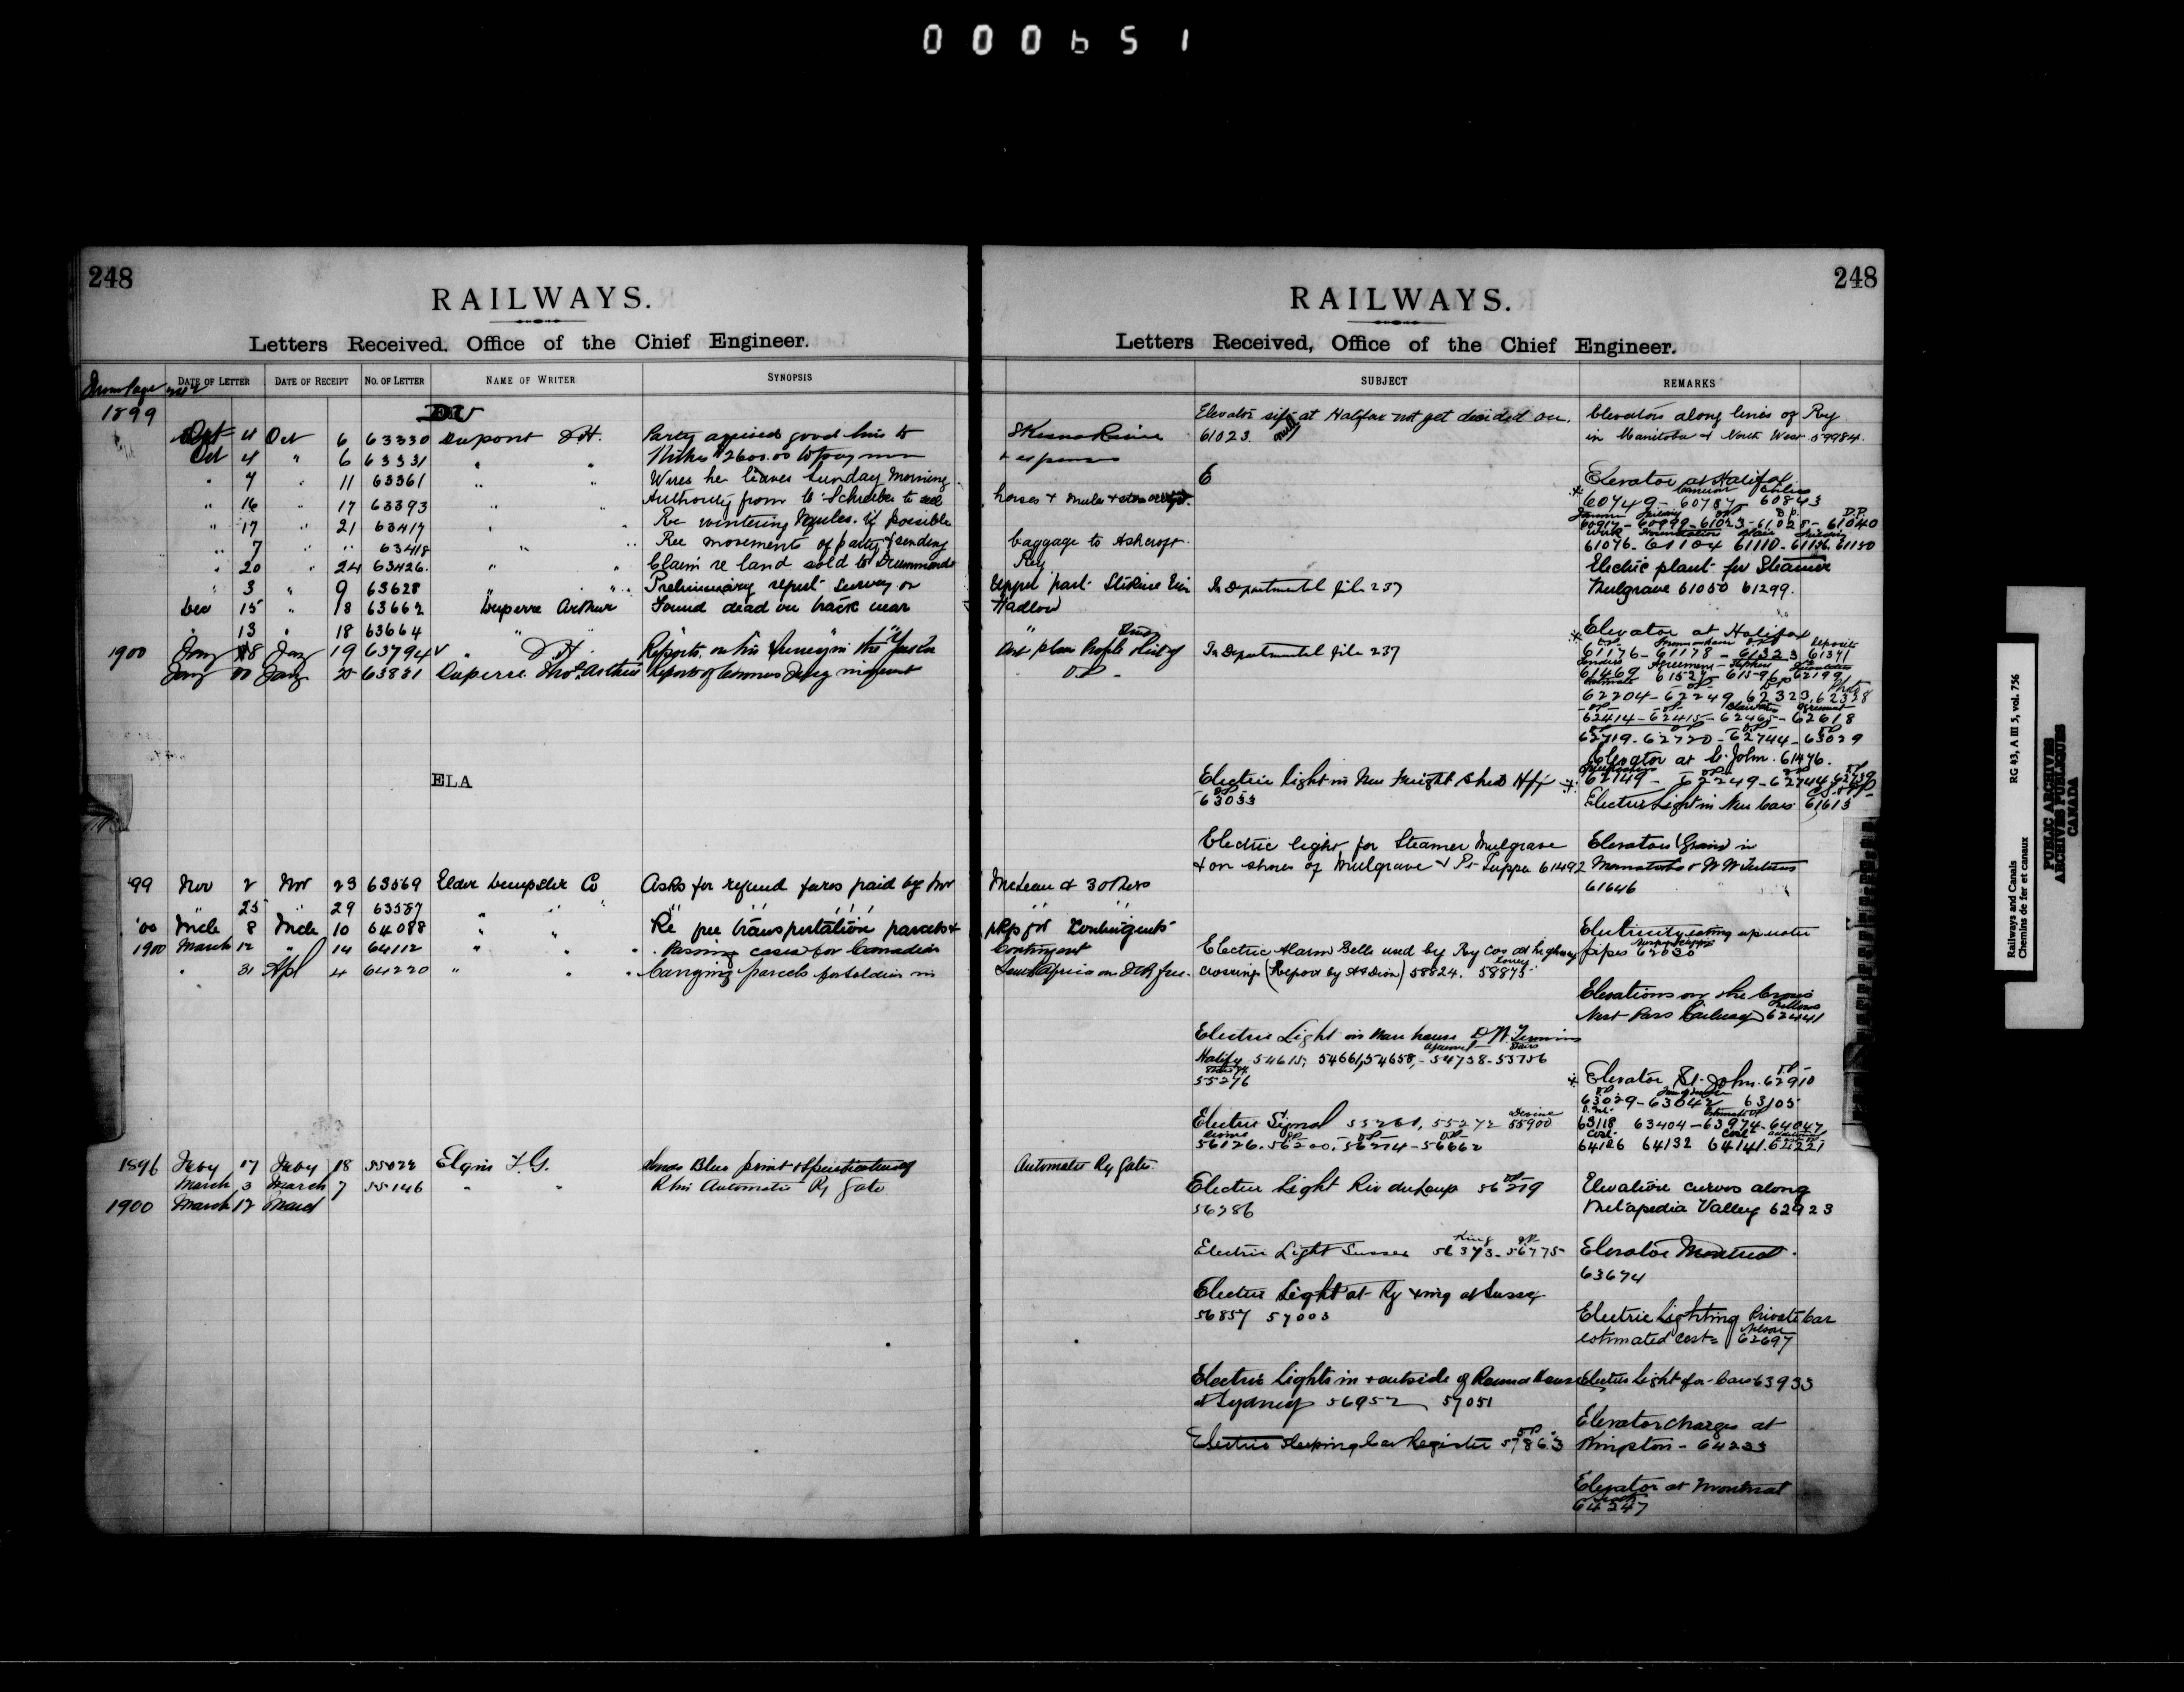 000651
248
RAILWAYS.
Letters Received, Office of the Chief Engineer.
DATE OF LETTER DATE OF RECEIPT NO. OF LETTER NAME OF WRITER SYNOPSIS
1899
DU
Oct 4 Oct 6 63330 Dupont D.H. Party good
Oct 4 " 6 63331 " " Wishes $2600.00 to pay men
" 7 " 11 63361 " " Wires he leaves Sunday Morning
" 16 " 17 63393 " " Authority from C. Schreiber to sell
" 17 " 21 63417 " " Re wintering Mules. if possible
" 7 " " 63418 " " Re movements of party & sending
" 20 " 24 63426. " " Claim re land sold to Drummond
" 3 " 9 63628 " " Preliminary report survey on
Dec 15 " 18 63662 Duperre Arthur Found dead on track near
" 13 " 18 63664 " "
1900 Jany 18 Jany 19 63794 " D.H. Reports on his Survey in the Yukon
Jany 20 Jany 20 63831 Duperre Thos. Arthur Report of Coroners Jury inquest
ELA
'99 Nov 2 Nov 23 63569 Elder Dempster Co Asks for refund fares paid by Mr
" 25 " 29 63587 " " "
'00 Mch 8 Mch 10 64088 " " Re free transportation parcels &
1900 March 12 " 14 64112 " " Passing cases for Canadian
" 31 Apl 4 64220 " " Carrying parcels for soldiers in
1896 Feby 17 Feby 18 55022 Elgin F.G. Sends Blue print & Specification of
March 3 March 7 55146 " " R his Automatic Ry Gate
1900 March 12 March
248
RAILWAYS.
Letters Received, Office of the Chief Engineer.
SUBJECT REMARKS
Skeena River
& expenses
horses & mules &
baggage to Ashcroft
Ry
Upper part Stikine
Hadlow
and plan Profile
D.P.
McLean & 3 others
" "
pkgs for Contingents
Contingent
South Africa on ICR free.
Automatic Ry Gate.
Elevator site at Halifax not yet decided on.
61023.
E
In Departmental file 237
In Departmental file 237
Electric light in New Freight Shed Hfx
63053
Electric light for Steamer Mulgrave
& on shores of Mulgrave & Pt Tupper 61492
Electric Alarm Bells used by Ry Cos at highway
crossing (Report by 58824. 58875
Electric Light in Ware house D.W.
Halifx 54615, 54661, 54658, - 54738 - 55756
55276
Electric Signal 55261, 55272 55900
56126. 56200. 56274 - 56662
Electric Light Riv du Loup 56219
56286
Electric Light Sussex 56373 - 56775
Electric Light at Ry xing at Sussex
56857 57003
Electric Lights in & outside of Round House
at Sydney 56952 57051
Electric Sleeping Car Register 57863
Elevators along lines of Ry
in Manitoba & North West 59984.
Elevator at Halifax
60749 - 60787 60843
60917 - 60999 - 61023 - 61028 - 61040
61076. 61104 61110 - 61136. 61150
Electric plant for Steamer
Mulgrave 61050 61299.
Elevator at Halifax
61176 - 61178 - 61323 61341
61469 61527 - 61596 62199
62204 - 62249 62323, 62328
62414 - 62415 - 62465 - 62618
62719 - 62720 - 62744 - 63029
Elevator at St. John. 61476.
62149 - 62249 - 62744 62739
Electric Light in New Cars 61613
Elevators (Grain) in
Manitoba & N W Territories
61646
Electricity eating up water
pipes 62030
Elevations on the Crows
Nest Pass Railway 62441
Elevator St. John. 62910
63029 - 63042 63105
63118 63404 - 63974 - 64047
64126 64132 64141. 64221
Elevation curves along
Metapedia Valley 62923
Elevator Montreal.
63674
Electric Lighting Private Car
estimated cost = 62697
Electric Light for Cars 63933
Elevator charges at
Kingston - 64233
Elevator at Montreal
64247
Railways and Canals
Chemins de fer et canaux
RG 43, A III 5, vol. 756
PUBLIC ARCHIVES
ARCHIVES PUBLIQUES
CANADA